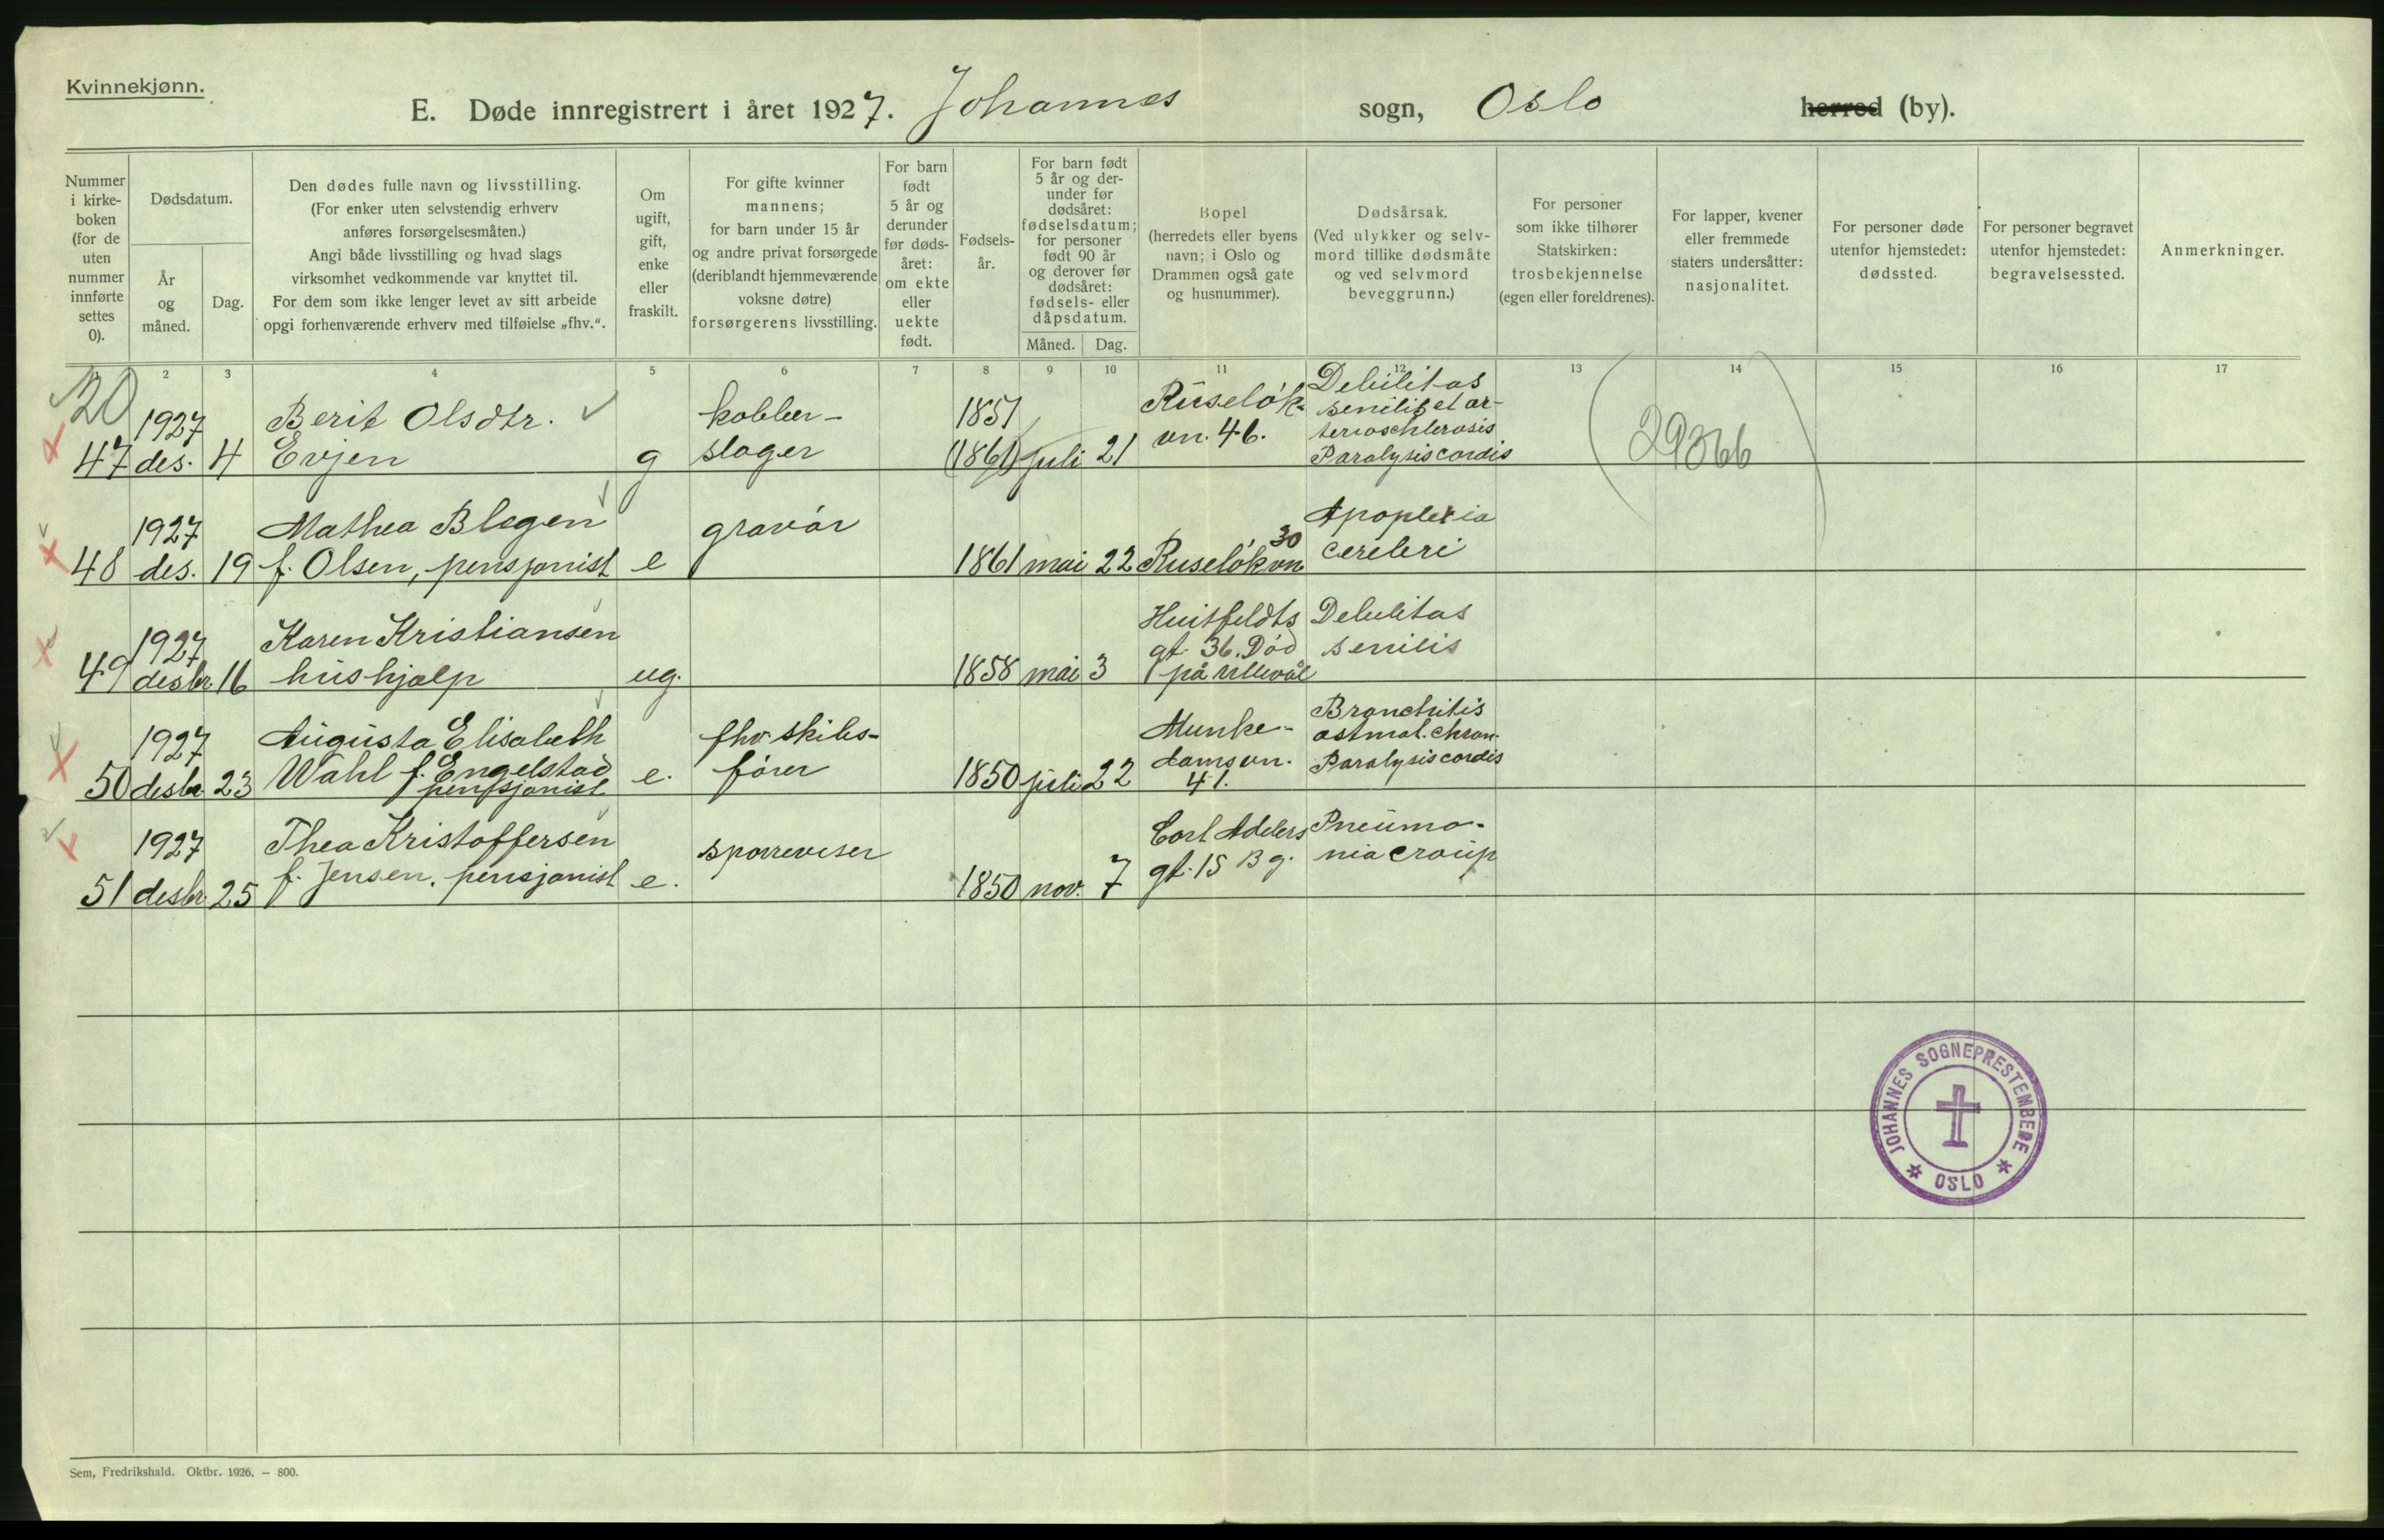 Kvinnekjønn.
E. Døde innregistrert i året 1927. Johannes sogn, Oslo herred (by).
Nummer i kirke-boken (for de uten nummer innførte settes 0).
Dødsdatum.
År og måned.
Dag.
Den dødes fulle navn og livsstilling.
(For enker uten selvstendig erhverv
anføres forsørgelsesmåten.)
Angi både livsstilling og hvad slags
virksomhet vedkommende var knyttet til.
For dem som ikke lenger levet av sitt arbeide
opgi forhenværende erhverv med tilføielse „fhv.“.
Om
ugift,
gift,
enke
eller
fraskilt.
For gifte kvinner
mannens;
for barn under 15 år
og andre privat forsørgede
(deriblandt hjemmeværende
voksne døtre)
forsørgerens livsstilling.
For barn
født
5 år og
derunder
før døds-
året:
om ekte
eller
uekte
født.
Fødsels-
år.
For barn født
5 år og der-
under før
dødsåret:
fødselsdatum;
for personer
født 90 år
og derover før
dødsåret:
fødsels- eller
dåpsdatum.
Måned. Dag.
Bopel
(herredets eller byens
navn; i Oslo og
Drammen også gate
og husnummer).
Dødsårsak.
(Ved ulykker og selv-
mord tillike dødsmåte
og ved selvmord
beveggrunn.)
For personer
som ikke tilhører
Statskirken:
trosbekjennelse
(egen eller foreldrenes).
For lapper, kvener
eller fremmede
staters undersåtter:
nasjonalitet.
For personer døde
utenfor hjemstedet:
dødssted.
For personer begravet
utenfor hjemstedet:
begravelsessted.
Anmerkninger.
2 3 4 5 6 7 8 9 10 11 12 13 14 15 16 17
20
1927 Berit Olsdtr. kobber- 1851 Ruseløk- Debilitas
senilis et ar-
vn. 46. terioschlerosis
47 des. 4 Evjen g slager (1861) juli 21 Paralysis cordis
29366
1927 Mathea Blegen gravør Apoplexia
30
48 des. 19 f. Olsen, pensjonist e 1861 mai 22 Ruseløkvn cerebri
1927 Karen Kristiansen Huitfeldts Debilitas
gt. 36. Død senilis
49 desbr. 16 hushjælp ug. 1858 mai 3 på Ullevål
1927 Augusta Elisabeth fhv. skibs- Munke- Bronchitis
astmat. chron.
Wahl f. Engelstad fører damsvn. Paralysis cordis
50 desbr 23 pensjonist e. 1850 juli 22 41.
1927 Thea Kristoffersen sporreviser Cort Adelers Pneumo-
gt. 15 Bg. nia croup
51 desbr. 25 f. Jensen, pensjonist e. 1850 nov. 7
JOHANNES SOGNEPRESTEMBEDE
* OSLO *
Sem, Fredrikshald. Oktbr. 1926. — 800.